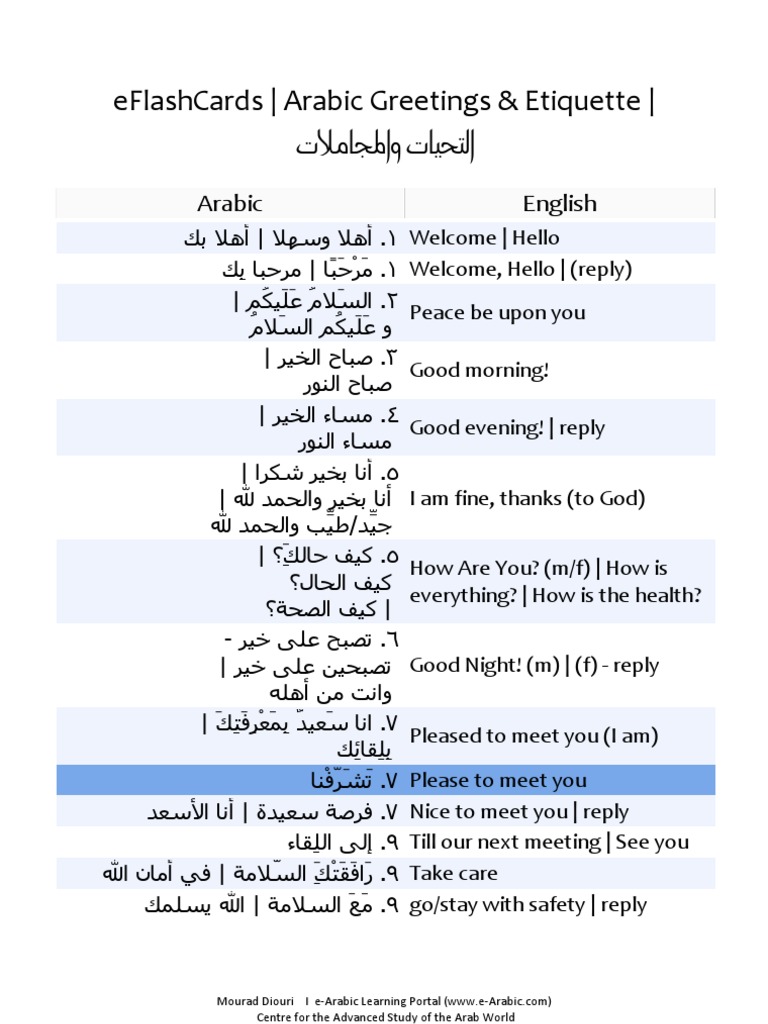 eFlashCards | Arabic Greetings & Etiquette |
التحيات والمجاملات
Arabic English
١. أهلا وسهلا | أهلا بك Welcome | Hello
١. مَرْحَبًا | مرحبا بِك Welcome, Hello | (reply)
٢. السَلامُ عَلَيكُم |
و عَلَيكُم السَلامُ
Peace be upon you
٣. صباح الخير |
صباح النور
Good morning!
٤. مساء الخير |
مساء النور
Good evening! | reply
٥. أنا بخير شكرا |
أنا بخير والحمد لله |
جيِّد/طيِّب والحمد لله
I am fine, thanks (to God)
٥. كيف حالكَِ؟ |
كيف الحال؟
| كيف الصحة؟
How Are You? (m/f) | How is
everything? | How is the health?
٦. تصبح على خير -
تصبحين على خير |
وانت من أهله
Good Night! (m) | (f) - reply
٧. انا سَعيدٌ بِمَعْرِفَتِكَ |
بِلِقائِك
Pleased to meet you (I am)
٧. تَشَرَّفْنا Please to meet you
٧. فرصة سعيدة | أنا الأسعد Nice to meet you | reply
٩. إلى اللِقاء Till our next meeting | See you
٩. رَافَقَتْكَِ السّلامة | في أمان الله Take care
٩. مَعَ السلامة | الله يسلمك go/stay with safety | reply
Mourad Diouri I e-Arabic Learning Portal (www.e-Arabic.com)
Centre for the Advanced Study of the Arab World